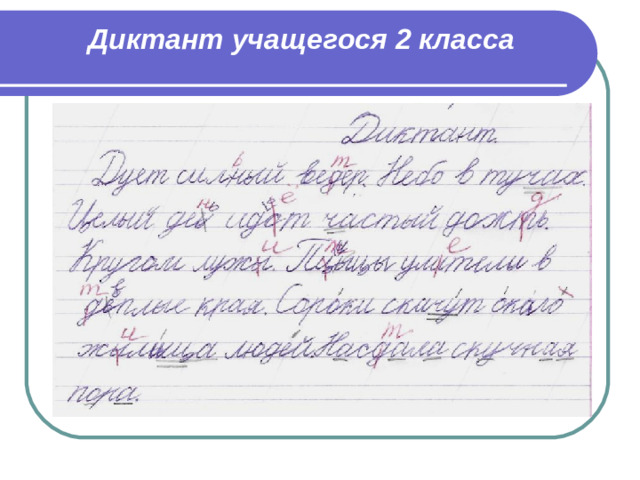 Диктант учащегося 2 класса
Диктант.
Дует силный ведер. Небо в тучих.
Целый ден идот частый дожть.
Кругом лужы. Пдыцы улители в
деплые края. Сороки скачут около
жылыща людей. Насдала скучная
пора.